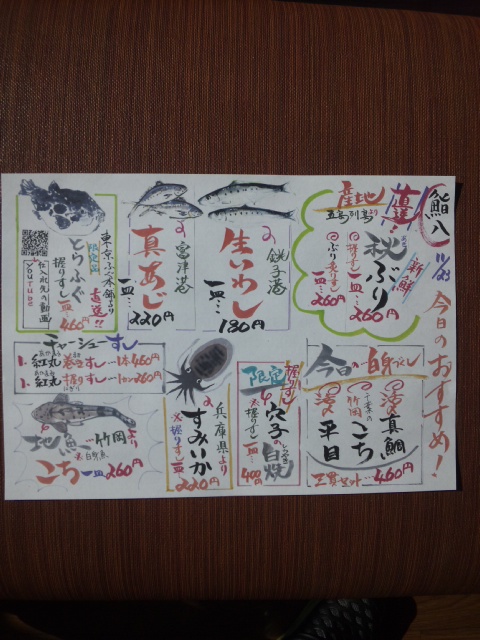 鮨八
11/23
今日のおすすめ!
産地
直送!
五島列島より
新鮮
秋ぶり
握りすし
一皿…
260円
ぶり炙りすし
一皿…
260円
銚子港
生いわし
一皿…
180円
富津港
真あじ
一皿…
220円
東京ふぐ本舗より
直送!!
限定品
とらふぐ
握りすし
一皿
460円
仕入れ先の動画
YouTube
チャーシューすし
1. 紅丸 巻きすし…1本460円
1. 紅丸 握りすし…1カン260円
地魚…竹岡
白身魚
こち 一皿260円
兵庫県より
すみいか
※握りすし一皿
220円
限定
握りすし
穴子の
白焼
しらやき
※握りすし
一皿…
400円
今日の白身づくし
真鯛
千葉の
竹岡
こち
平目
三貫セット…460円